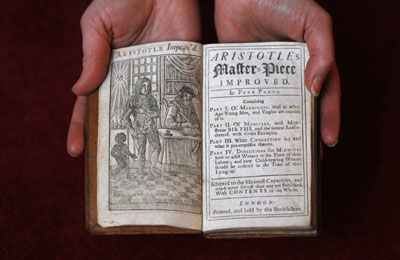 ARISTOTLE Improv'd.
ARISTOTLE's
Master-Piece
IMPROVED.
In Four Parts.
Containing
PART I. Of MARRIAGES, and at what
Age Young Men, and Virgins are capable
of it.
PART II. Of MONSTERS, and Mon-
strous BIRTHS, and the several Reasons
thereof, with divers Examples.
PART III. What CONCEPTION is; and
what is pre-requisite thereto.
PART IV. DIRECTIONS for MIDWIVES
how to assist Women in the Time of their
Labour; and how Child-bearing Women
should be ordered in the Time of their
Lying-in.
Adapted to the Meanest Capacities, and
much more Correct than any yet Publish'd.
With CONTENTS to the Whole.
LONDON:
Printed, and Sold by the Booksellers.